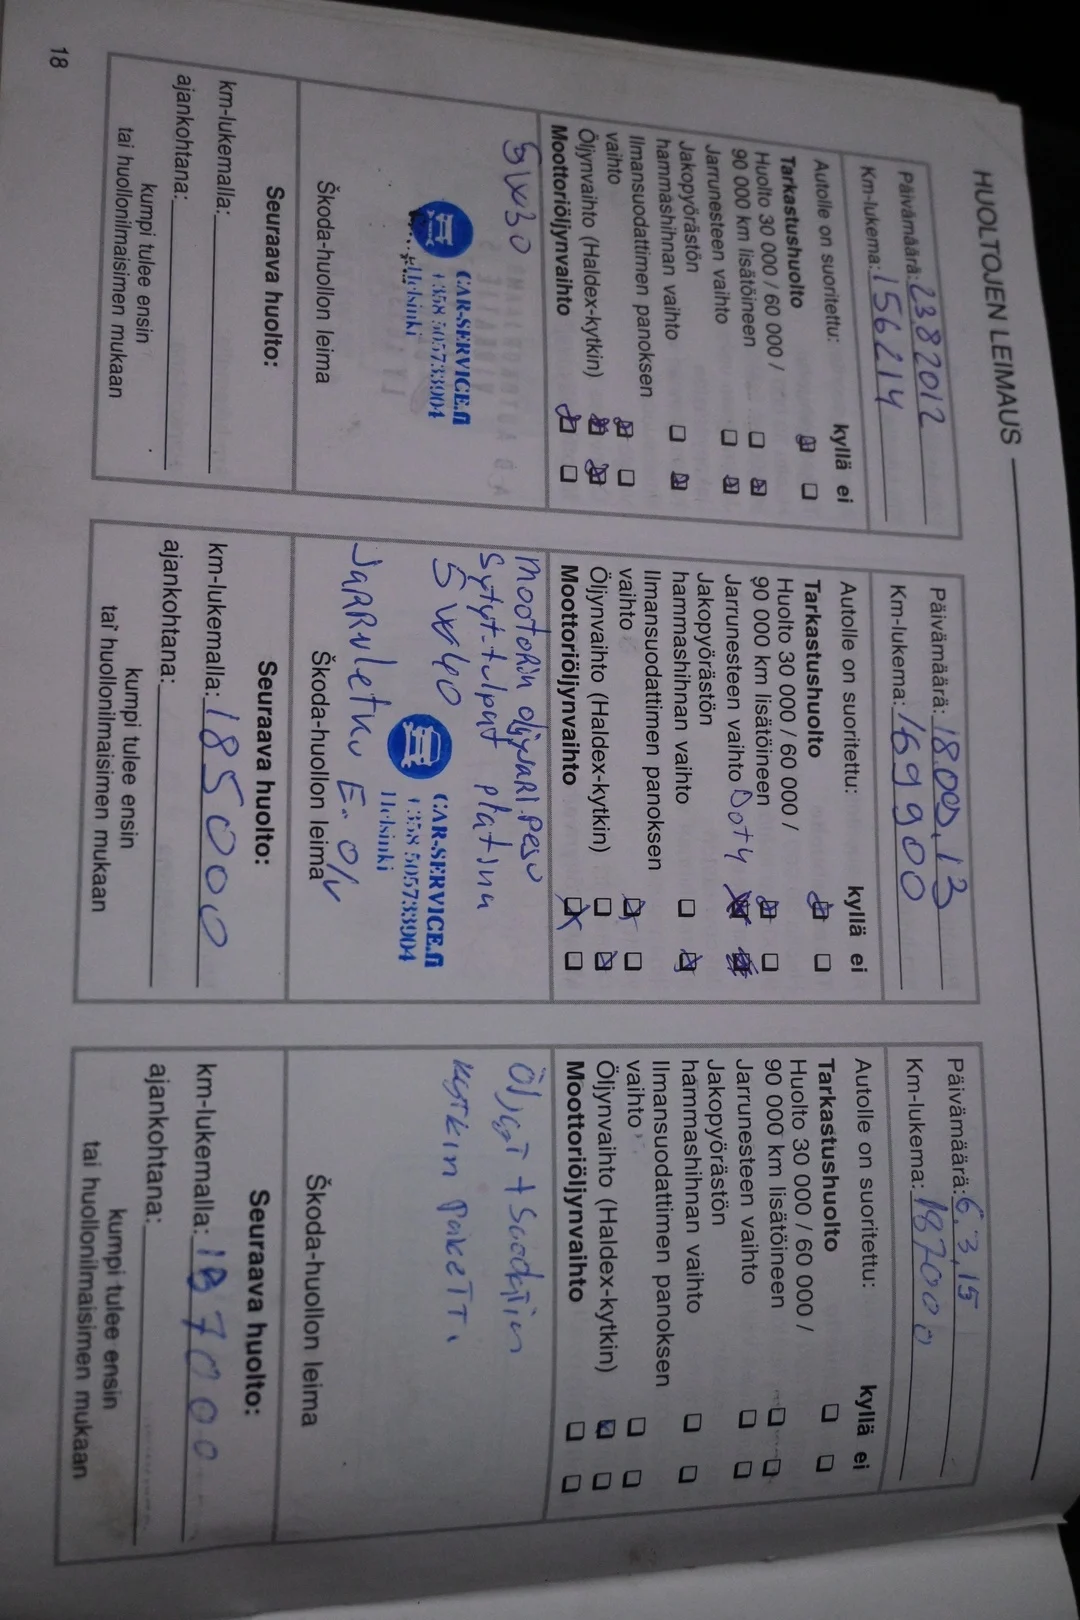 HUOLTOJEN LEIMAUS
Päivämäärä: 2382012
Km-lukema: 156214
Autolle on suoritettu: kyllä ei
Tarkastushuolto
Huolto 30 000 / 60 000 /
90 000 km lisätöineen
Jarrunesteen vaihto
Jakopyörästön
hammashihnan vaihto
Ilmansuodattimen panoksen
vaihto
Öljynvaihto (Haldex-kytkin)
Moottoriöljynvaihto
5W30
CAR-SERVICE.fi
+358 505733904
Helsinki
Škoda-huollon leima
Seuraava huolto:
km-lukemalla:
ajankohtana:
kumpi tulee ensin
tai huollonilmaisimen mukaan
Päivämäärä: 18.005.13
Km-lukema: 169900
Autolle on suoritettu: kyllä ei
Tarkastushuolto
Huolto 30 000 / 60 000 /
90 000 km lisätöineen
Jarrunesteen vaihto Dot4
Jakopyörästön
hammashihnan vaihto
Ilmansuodattimen panoksen
vaihto
Öljynvaihto (Haldex-kytkin)
Moottoriöljynvaihto
Moottorin öljyjäri pesu
Sytyt.tulpat platina
5W40
CAR-SERVICE.fi
+358 505733904
Helsinki
Jarruletku E. O/V
Škoda-huollon leima
Seuraava huolto:
km-lukemalla: 185000
ajankohtana:
kumpi tulee ensin
tai huollonilmaisimen mukaan
Päivämäärä: 6.3,15
Km-lukema: 187000
Autolle on suoritettu: kyllä ei
Tarkastushuolto
Huolto 30 000 / 60 000 /
90 000 km lisätöineen
Jarrunesteen vaihto
Jakopyörästön
hammashihnan vaihto
Ilmansuodattimen panoksen
vaihto
Öljynvaihto (Haldex-kytkin)
Moottoriöljynvaihto
Öljyt + Suodatin
Kytkin paketti
Škoda-huollon leima
Seuraava huolto:
km-lukemalla: 187000
ajankohtana:
kumpi tulee ensin
tai huollonilmaisimen mukaan
18